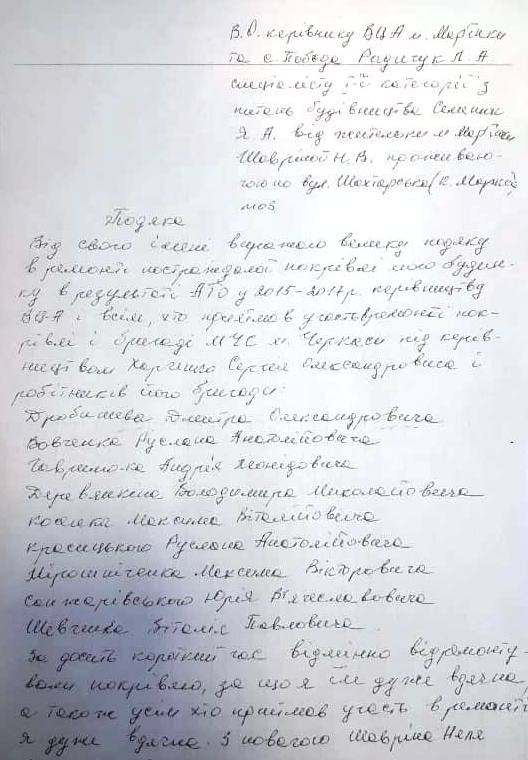 В.О. керівнику ВЦА м. Мар'їнки
та с. Побєда Радичук Л. А
спеціалісту ІІ категорії з
питань будівництва Семеник
Я А. від жительки м Мар'їнки
Шавріної Н. В. проживаю-
чої по вул. Шахтарська (К. Маркса)
Подяка
Від свого імені виражаю велику подяку
в ремонті постраждалої покрівлі мого будин-
ку в результаті АТО у 2015-2017р. керівництву
ВЦА і всім, хто приймав участь в ремонті пок-
рівлі і бригаді МЧС м. Черкаси під керів-
ництвом Харченко Сергія Олександровича і
робітників його бригади:
Дробишева Дмитра Олександровича
Вовченка Руслана Анатолійовича
Гаврилюка Андрія Леонідовича
Дерев'янкіна Володимира Миколайовича
Коселка Максима Віталійовича
Красицького Руслана Анатолійовича
Мірошніченка Максима Вікторовича
Санжарівського Юрія Вячеславовича
Шевченка Віталія Павловича.
За досить короткий час відмінно відремонту-
вали покрівлю, за що я їм дуже вдячна
а також усім хто приймав участь в ремонті
я дуже вдячна. З повагою Шавріна Неля